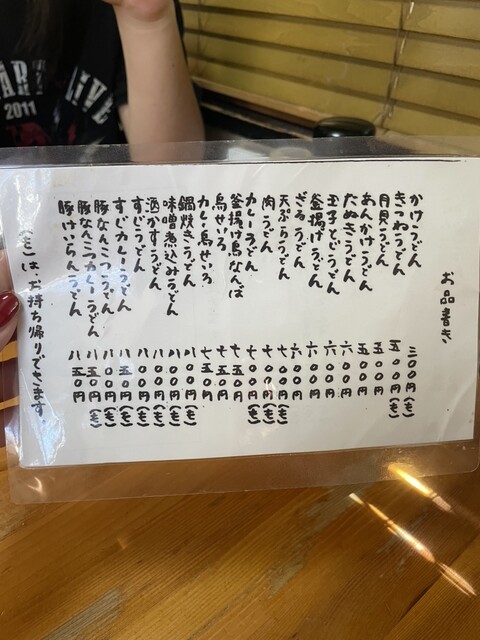 お品書き
かけうどん 三〇〇円
きつねうどん 五〇〇円(も)
月見うどん 五〇〇円
あんかけうどん 五〇〇円
たぬきうどん 六〇〇円
玉子とじうどん 六〇〇円
釜揚げうどん 六〇〇円
ざるうどん 六〇〇円
天ぷらうどん 七〇〇円(も)
肉うどん 七〇〇円(も)
カレーうどん 七〇〇円(も)
釜揚げ鳥なんば 七五〇円
鳥せいろ 七五〇円
カレー鳥せいろ 七五〇円
鍋焼きうどん 八〇〇円(も)
味噌煮込みうどん 八〇〇円(も)
酒かすうどん 八〇〇円(も)
すじうどん 八〇〇円(も)
すじカレーうどん 八五〇円(も)
豚なんこつうどん 八〇〇円(も)
豚なんこつカレーうどん 八五〇円(も)
豚けいらんうどん 八五〇円
(も)はお持ち帰りできます。
2011
LIVE